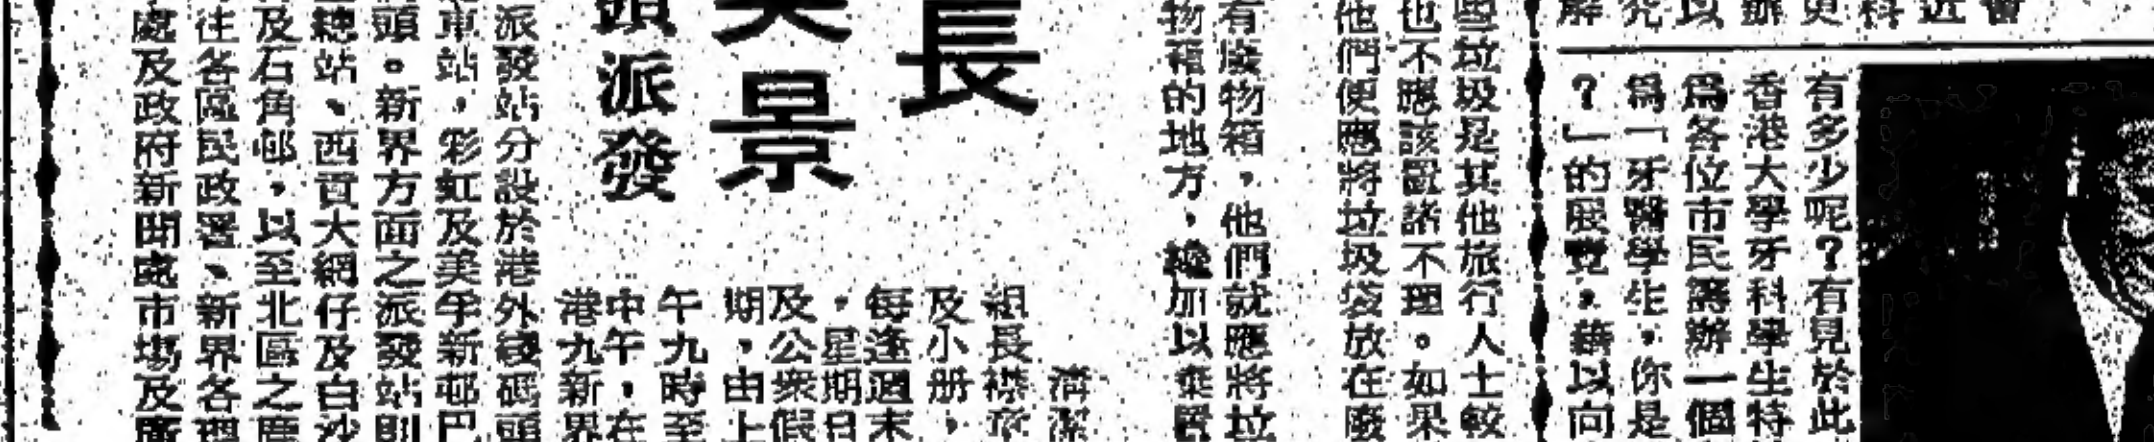 會
近
科
更
辦
以
究
解
有多少呢?有見於此
香港大學牙科學生特
爲各位市民籌辦一個
爲一牙醫學生,你是
?」的展覽。藉以向
些垃圾是其他旅行人士較
也不應該置諸不理。如果
他們便應將垃圾袋放在廢
有廢物箱,他們就應將垃
物箱的地方,纔加以棄置
長
美景
頭派發
清潔
組長襟章
及小册,
每逢週末
,星期日
及公衆假
期,由上
午九時至
中午,在
港九新界
派發站分設於港外綫碼頭
車站,彩虹及美孚新邨巴
頭。新界方面之派發站則
總站、西貢大網仔及白沙
及石角邨,以至北區之鹿
往各區民政署、新界各理
處及政府新聞處市場及廣